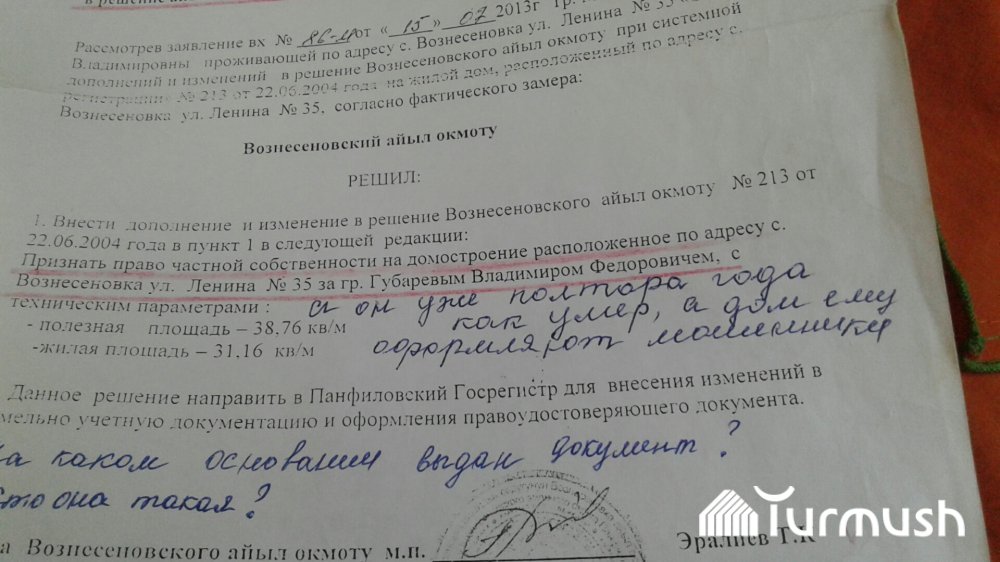 в решение
Рассмотрев заявление вх № 86-м от « 15 » 07 2013г Гр.
Владимировны проживающей по адресу с. Вознесеновка ул. Ленина № 35
дополнений и изменений в решение Вознесеновского айыл окмоту при системной
регистрации» № 213 от 22.06.2004 года на жилой дом, расположенный по адресу с.
Вознесеновка ул. Ленина № 35, согласно фактического замера:
Вознесеновский айыл окмоту
РЕШИЛ:
1. Внести дополнение и изменение в решение Вознесеновского айыл окмоту № 213 от
22.06.2004 года в пункт 1 в следующей редакции:
Признать право частной собственности на домостроение расположенное по адресу с.
Вознесеновка ул. Ленина № 35 за гр. Губаревым Владимиром Федоровичем, с
техническим параметрами : а он уже полтора года
- полезная площадь – 38,76 кв/м как умер, а дом ему
-жилая площадь – 31.16 кв/м оформляют мошенники
Данное решение направить в Панфиловский Госрегистр для внесения изменений в
мельно учетную документацию и оформления правоудостоверяющего документа.
на каком основании выдан документ?
кто она такая?
а Вознесеновского айыл окмоту м.п. Эралиев Т.К
Turmush